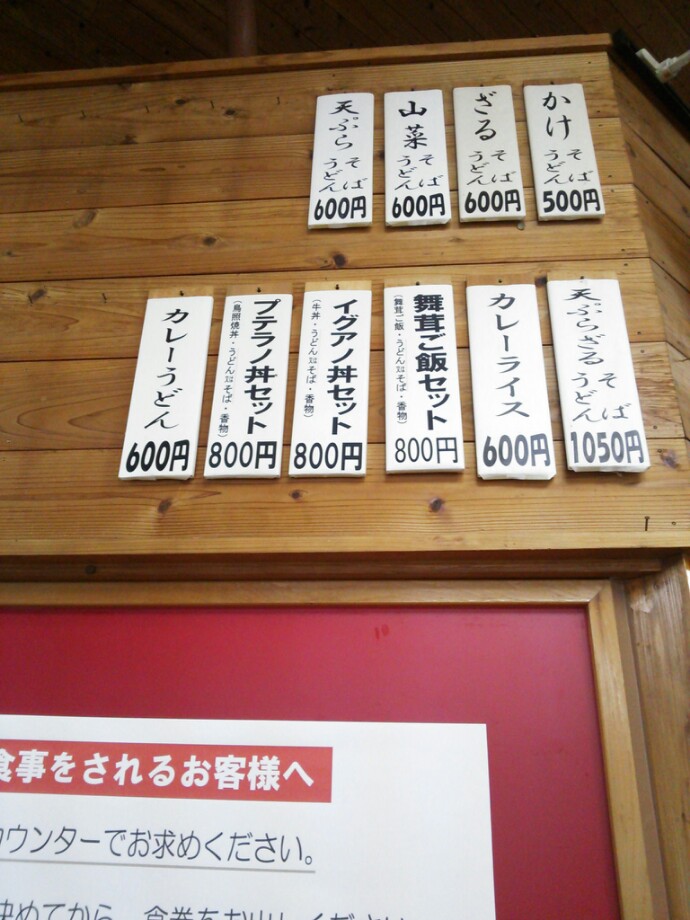 かけ
そば
うどん
500円
ざる
そば
うどん
600円
山菜
そば
うどん
600円
天ぷら
そば
うどん
600円
天ぷらざる
そば
うどん
1050円
カレーライス
600円
舞茸ご飯セット
(舞茸ご飯・うどん又はそば・香物)
800円
イグアノ丼セット
(牛丼・うどん又はそば・香物)
800円
プテラノ丼セット
(鳥照焼丼・うどん又はそば・香物)
800円
カレーうどん
600円
食事をされるお客様へ
カウンターでお求めください。
決めてから、食券をお出しください